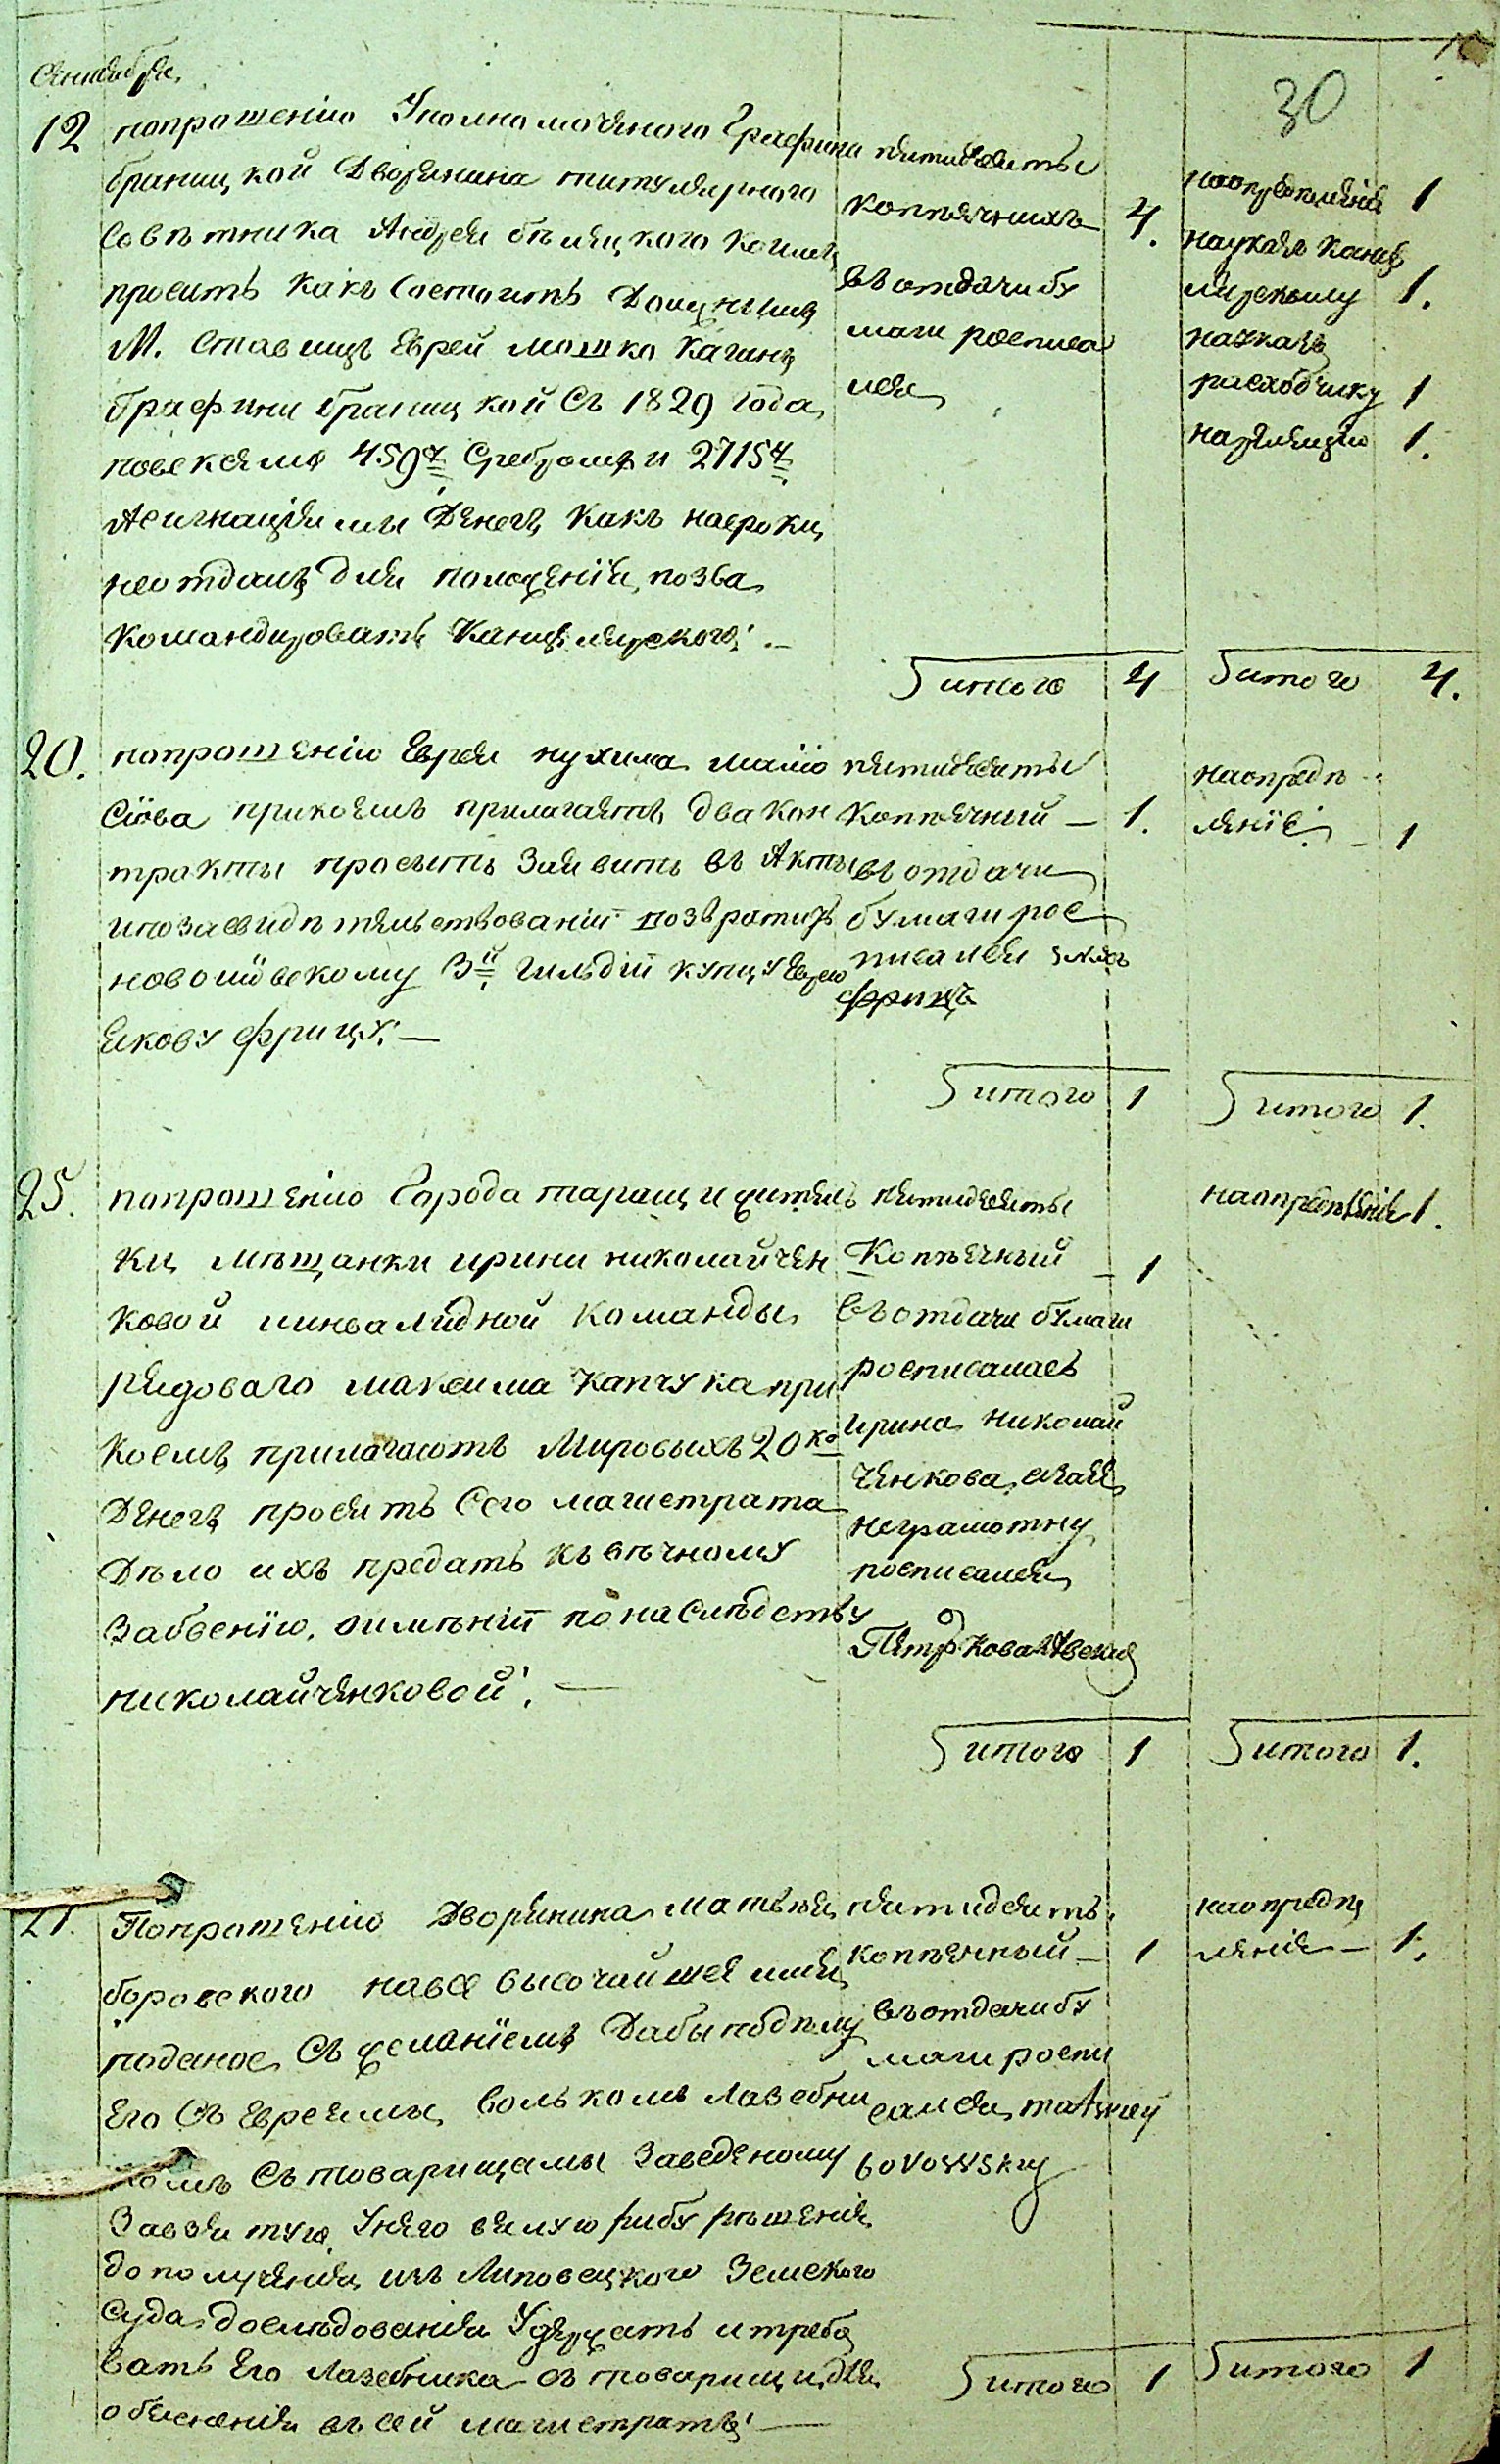 Сентября
30
12 попрошенію Уполномоченого Графини
браницкой Дворянина титулярного
Совѣтника Андрея бѣлецкого коимъ
проситъ какъ Состоитъ Долженъ
М. Ставищъ Еврей мошко Каганъ
Графини браницкой Съ 1829 года
повекселю 459 Сребромъ и 2715
Асигнаціями Денегъ какъ насроки
неотдалъ для положенія позва
командировать Канцелярского. —
пятидесяты
копѣечнихъ 4.
въ отдачи бу
маги росписа
лся
наопредѣленія 1
науказъ канце
лярскому 1.
науказъ
расходчику 1
назеляцію 1.
итого 4
итого 4.
20. попрошенію Еврея нухима маіо
Сіова прикоемъ прилагаетъ два кон
тракты проситъ Заявить въ Акты
ипозасвидѣтельствованіи возвратить
новоишвскому 3й гильдіи купцу Еврею
Якову фрицу. —
пятидесяты
копѣечный — 1.
въ отдачи
бумаги рос
писался
фрицъ
наопредѣ
леніе — 1
итого 1
итого 1.
25. попрошенію Города таращи житель
ки мѣщанки ирини николайчен
ковой иинвалидной команды
рядоваго максима капчука при
коемъ прилагаютъ Мировыхъ 20 ко
Денегъ просятъ Сего магистрата
Дѣло ихъ предать къ вѣчному
Забвенію, оимѣніи по наслѣдству
николайченковой. —
пятидесяты
Копѣечный — 1
Въ отдачи бумаги
росписалась
ирина николай
ченкова, азаее
неграмотну
росписался
Петръ Ковалевский
наопредѣленіе 1.
итого 1
итого 1.
27. Попрошенію Дворянина матвѣя
боровского навсе высочайшее имя
поданое Съ желаніемъ Дабы подѣлу
Его Съ Евреямы волькомъ Лазебни
комъ Съ товарищамы Заведеному
Завзятую Унего вялую рибу рѣшенія
до полученія изъ Липовецкого Земского
Суда дослѣдованія Удержать и требо
вать Его Лазебника съ товарищи для
обясненія въ сей магистратъ. —
пятидесятъ
копѣечный — 1
въ отдачи бу
маги роспи
сался Matwiey
Borowsky
наопредѣ
леніе — 1.
итого 1
итого 1